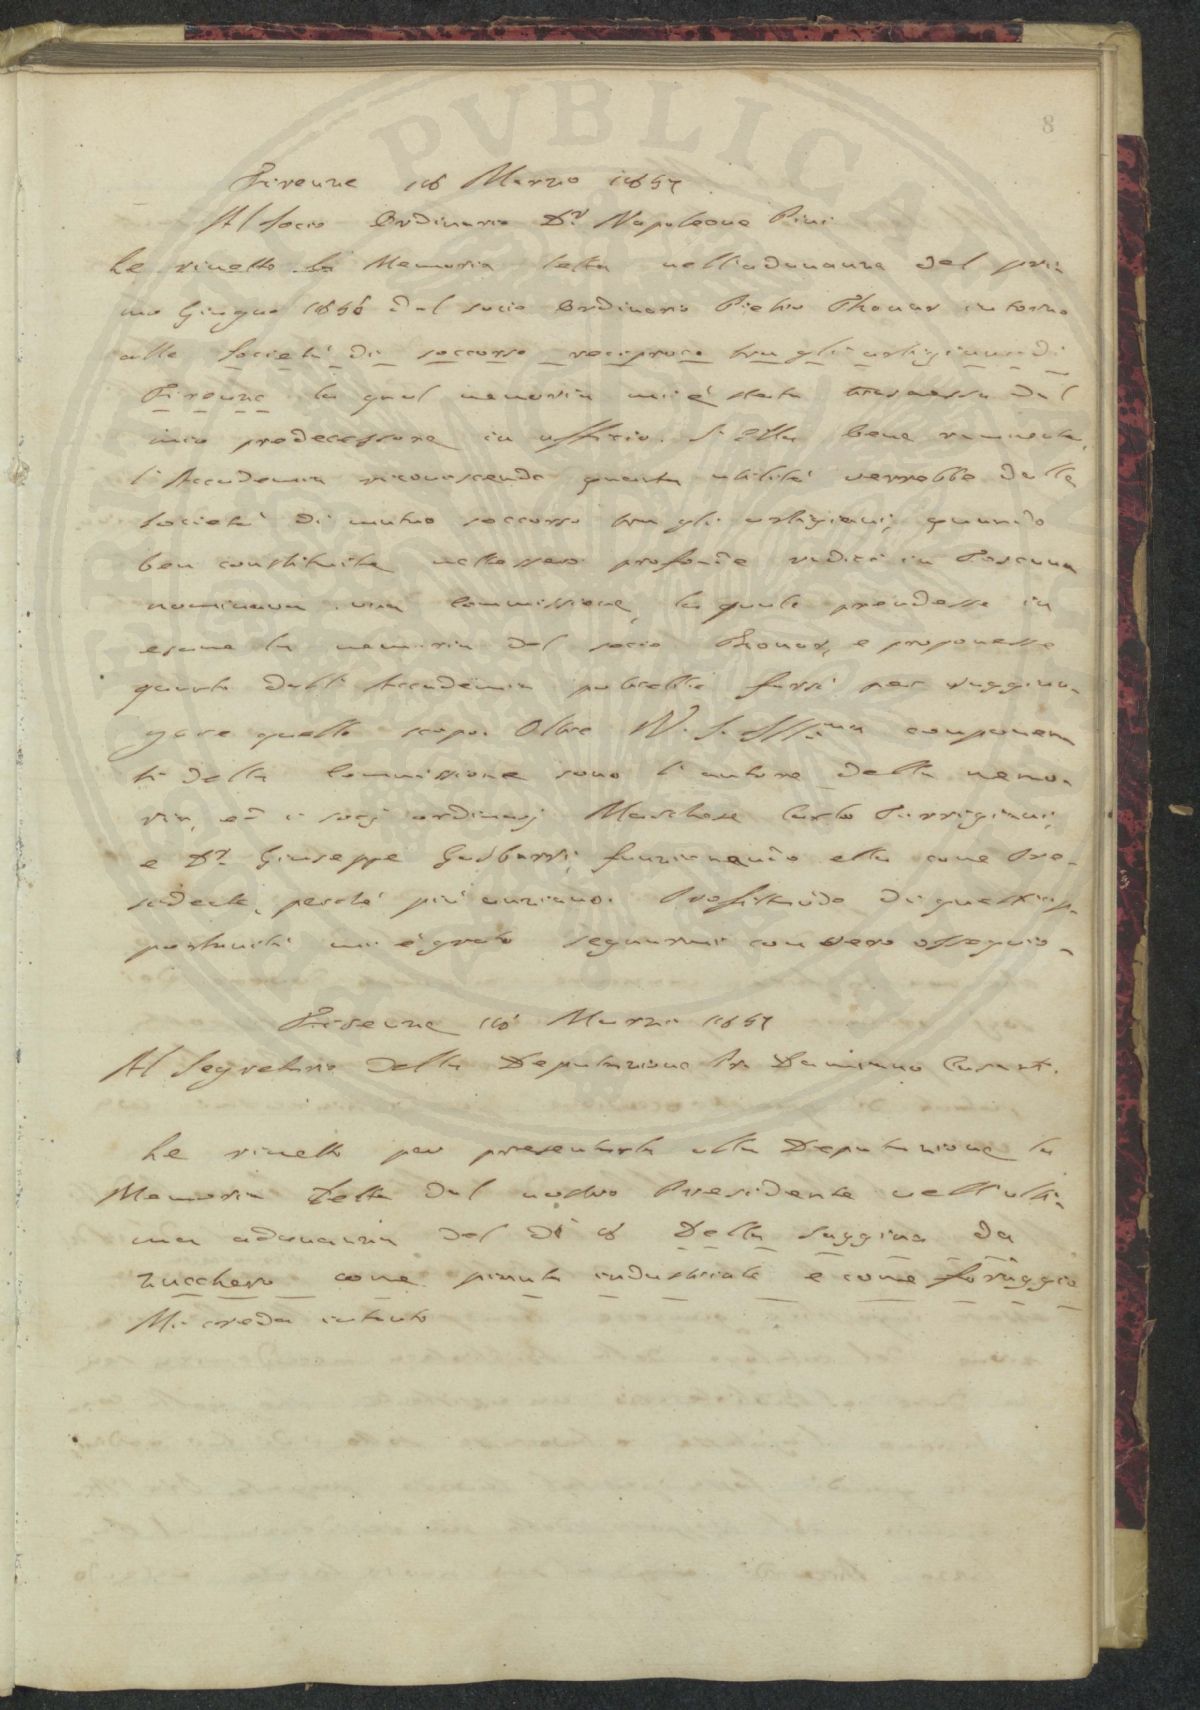 8
Firenze 18 Marzo 1857
Al Socio Ordinario Dr. Napoleone Pini
Le rimetto la Memoria letta nell'adunanza del pri
mo Giugno 1856 dal socio Ordinario Pietro Thouar intorno
alle Società di soccorso reciproco tra gli artigiani di
Firenze la qual memoria mi è stata trasmessa dal
mio predecessore in ufficio. S'Ella bene rammenta,
l'Accademia riconoscendo quanta utilità verrebbe dalle
Società di mutuo soccorso tra gli artigiani, quando
ben constituite mettessero profonde radici in Toscana
nominava una Commissione, la quale prendesse in
esame la memoria del socio Thouar, e proponesse
quanto dall'Accademia potrebbe farsi per raggiun-
gere quello scopo. Oltre V. S. Illma componen
ti della Commissione sono l'autore della memo-
ria, ed i socj ordinarj Marchese Carlo Torrigiani,
e Dr. Giuseppe Gadbarri, funzionando ella come Pre-
sidente, perché più anziano. Profittando di quest'op-
portunità mi è grato segnarmi con vero ossequio -
Firenze 18 Marzo 1857
Al Segretario della Deputazione Dr. Damiano Casanti.
Le rimetto per presentarla alla Deputazione la
Memoria letta dal nostro Presidente nell'ulti-
ma adunanza del dì 8 Della Saggina da
zucchero come pianta industriale e come foraggio
Mi creda intanto
PVBLICA